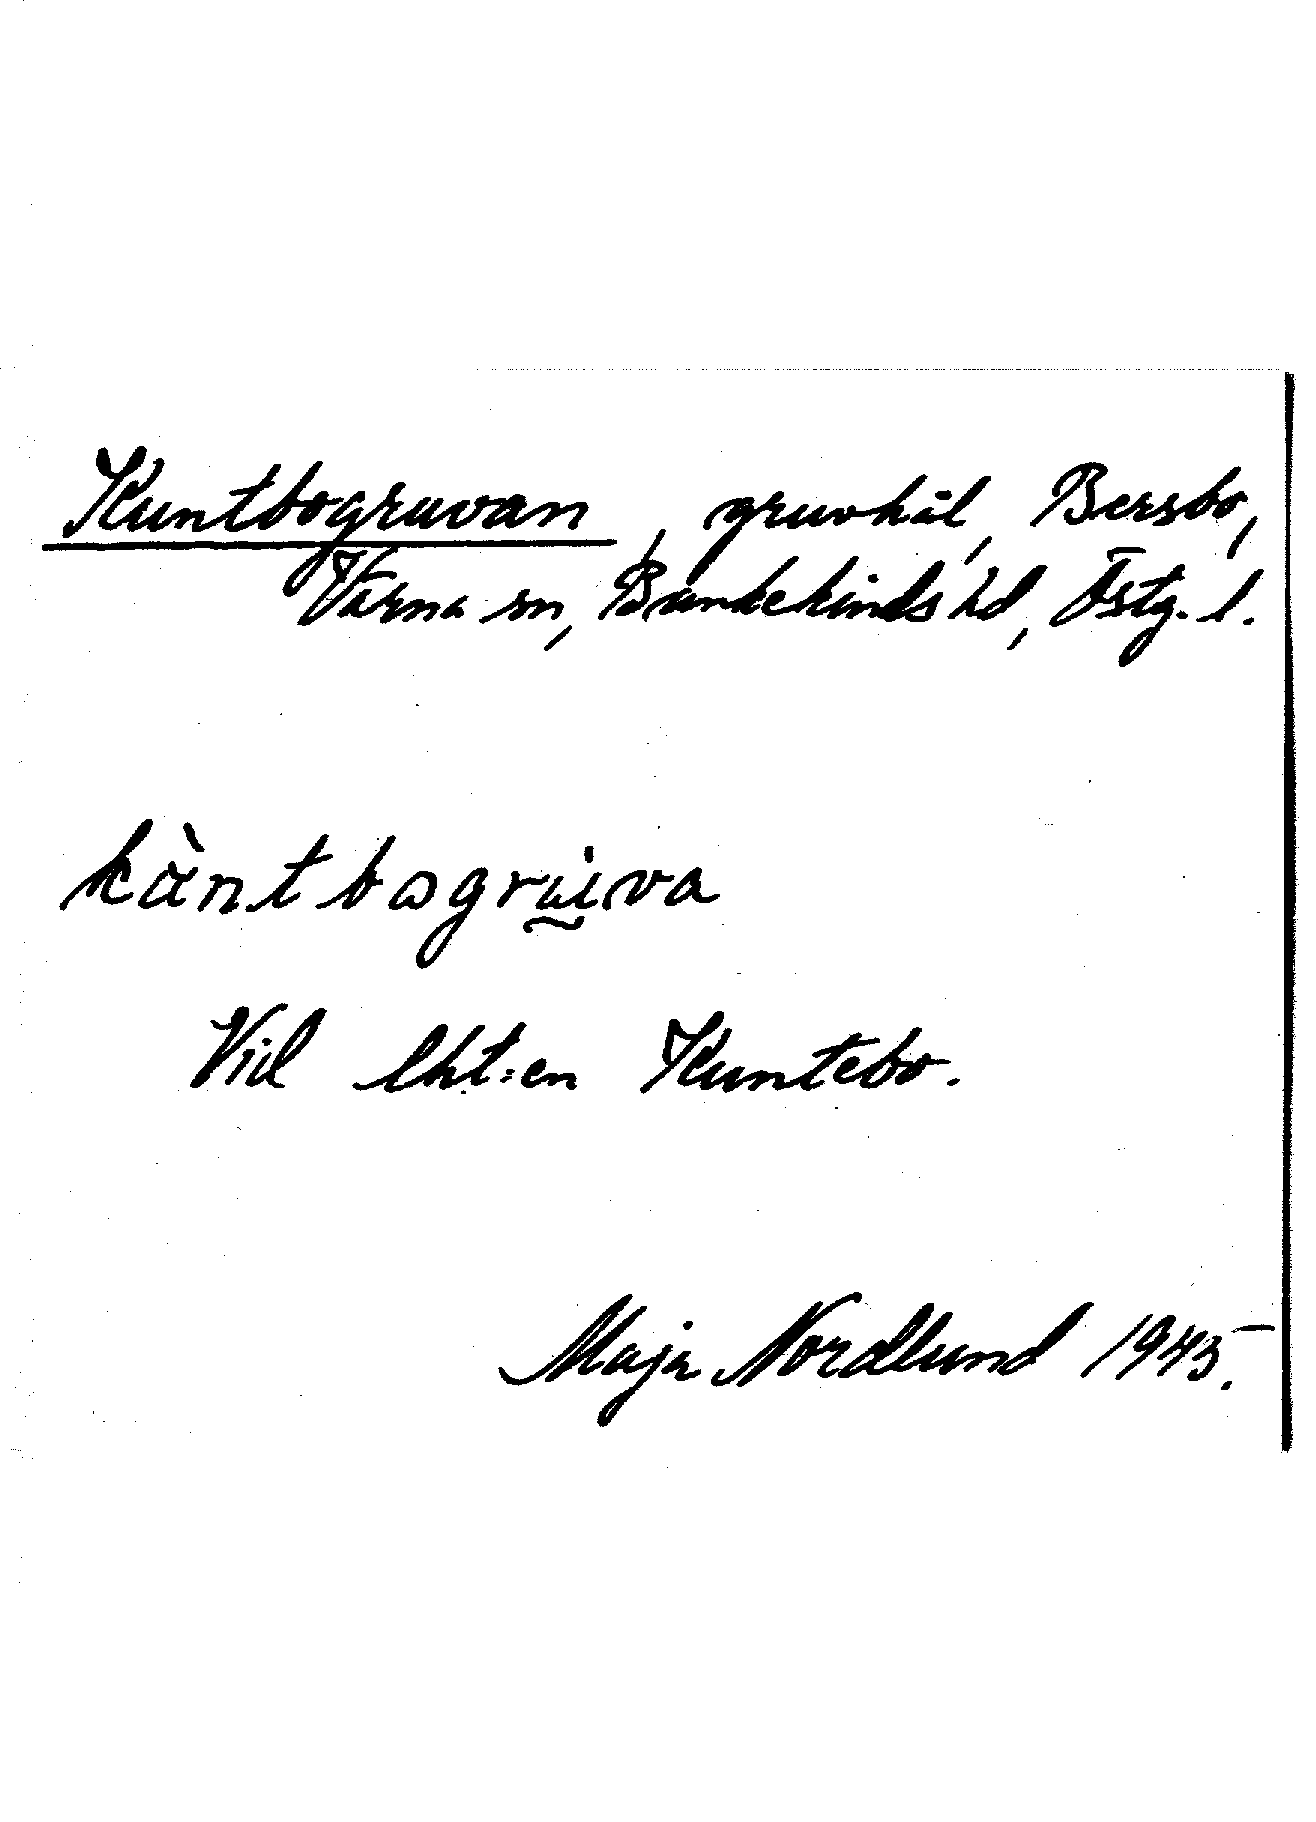 Kuntbogruvan, gruvhål, Bersbo,
Värna sn, Bankekinds hd, Östg. l.
kàntbogru̇va
Vid lht:en Kuntebo.
Maja Nordlund 1945.